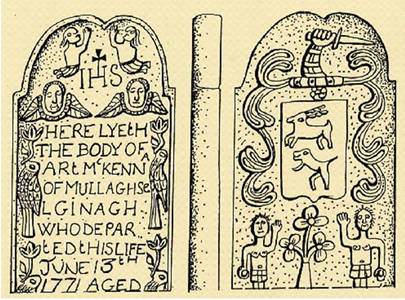 IHS
HERE LYETH
THE BODY OF
ART McKENNA
OF MULLAGHSE
LGINAGH.
WHO DEPAR
TED THIS LIFE
JUNE 13TH
1771 AGED